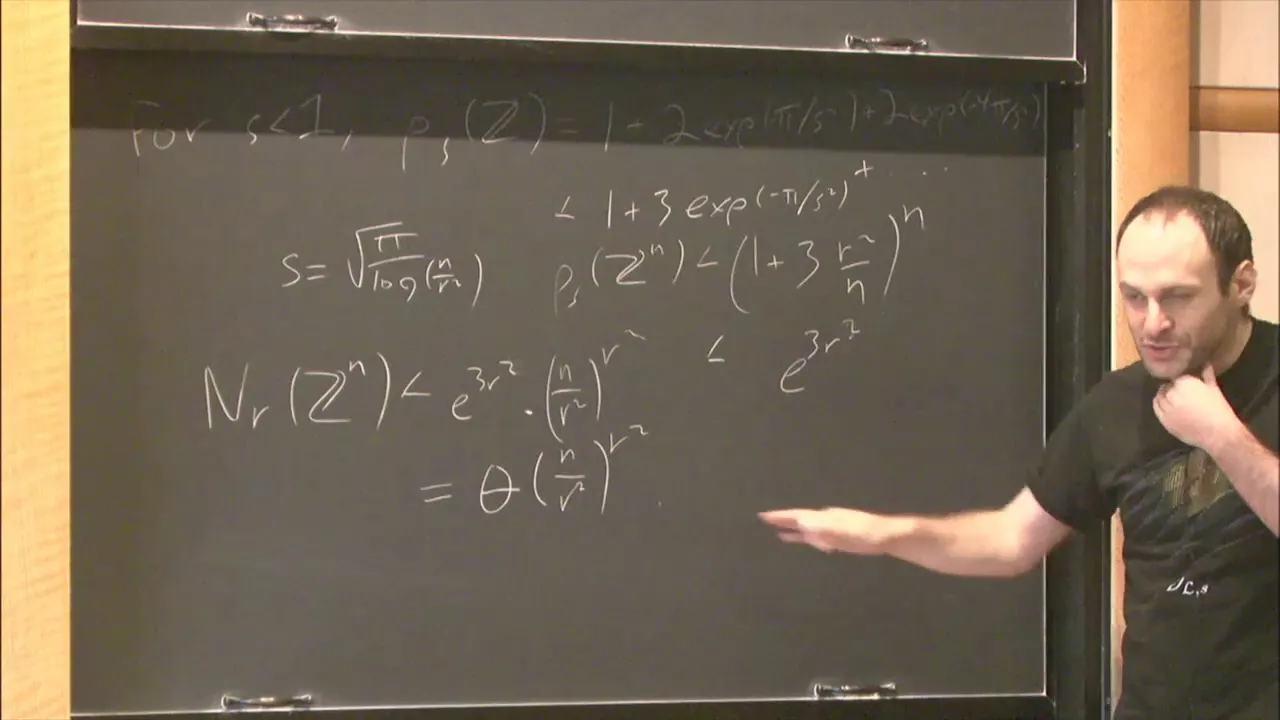 For s<1, ρ_s(ℤ) = 1 + 2exp(π/s²) + 2exp(-4π/s²)
+ ...
≤ 1+3 exp(-π/s²)
s = √(π/log(n/r²)) ρ_s(ℤⁿ) ≤ (1+3 r²/n)ⁿ
N_r(ℤⁿ) ≤ e^{3r²} · (n/r²)^{r²} ≤ e^{3r²}
= θ(n/r²)^{r²}